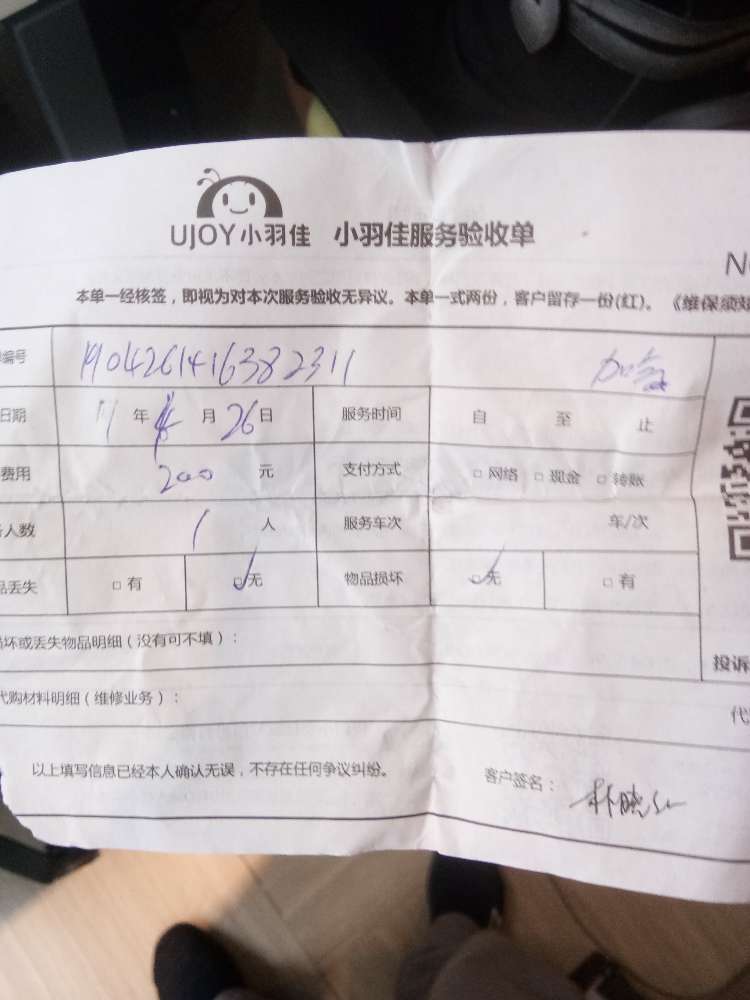 UJOY小羽佳 小羽佳服务验收单
N
本单一经核签，即视为对本次服务验收无异议。本单一式两份，客户留存一份(红)。《维保须知
编号 1904261416382311
日期 年 月 26 日 服务时间 自 至 止
费用 200 元 支付方式 □ 网络 □ 现金 □ 转账
人数 1 人 服务车次 车/次
品丢失 □ 有 □ 无 物品损坏 □ 无 □ 有
损坏或丢失物品明细（没有可不填）：
投诉
代购材料明细（维修业务）：
代
以上填写信息已经本人确认无误，不存在任何争议纠纷。
客户签名：